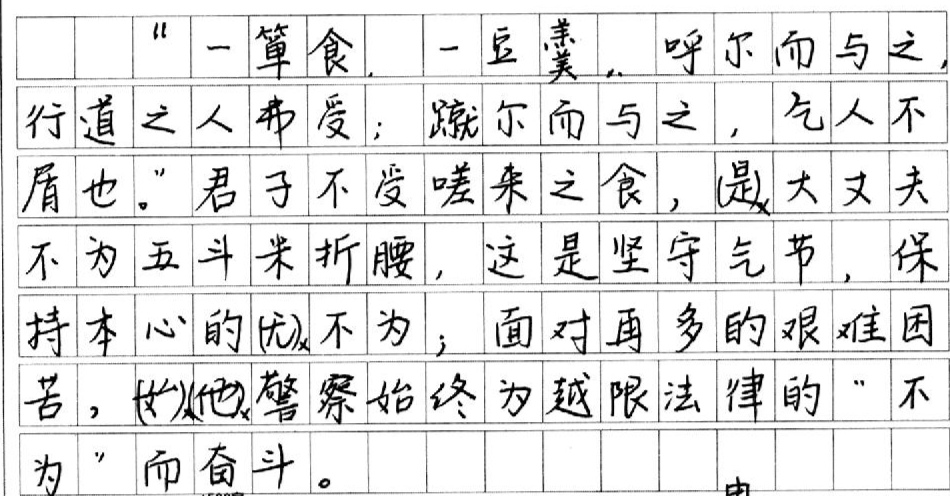 “一箪食,一豆羹,,呼尔而与之,
行道之人弗受;蹴尔而与之,乞人不
屑也。”君子不受嗟来之食,(是)x大丈夫
不为五斗米折腰,这是坚守气节,保
持本心的(无)x不为;面对再多的艰难困
苦,(始)x(他)x警察始终为越限法律的“不
为”而奋斗。